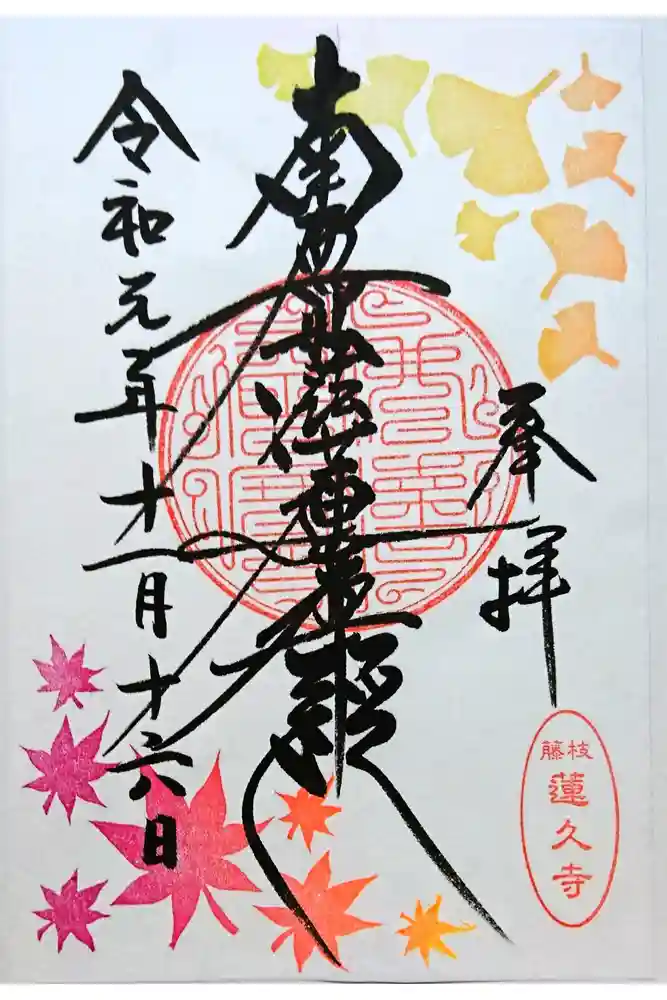 奉拝
南無妙法蓮華経
令和元年十一月十六日
藤枝
蓮久寺